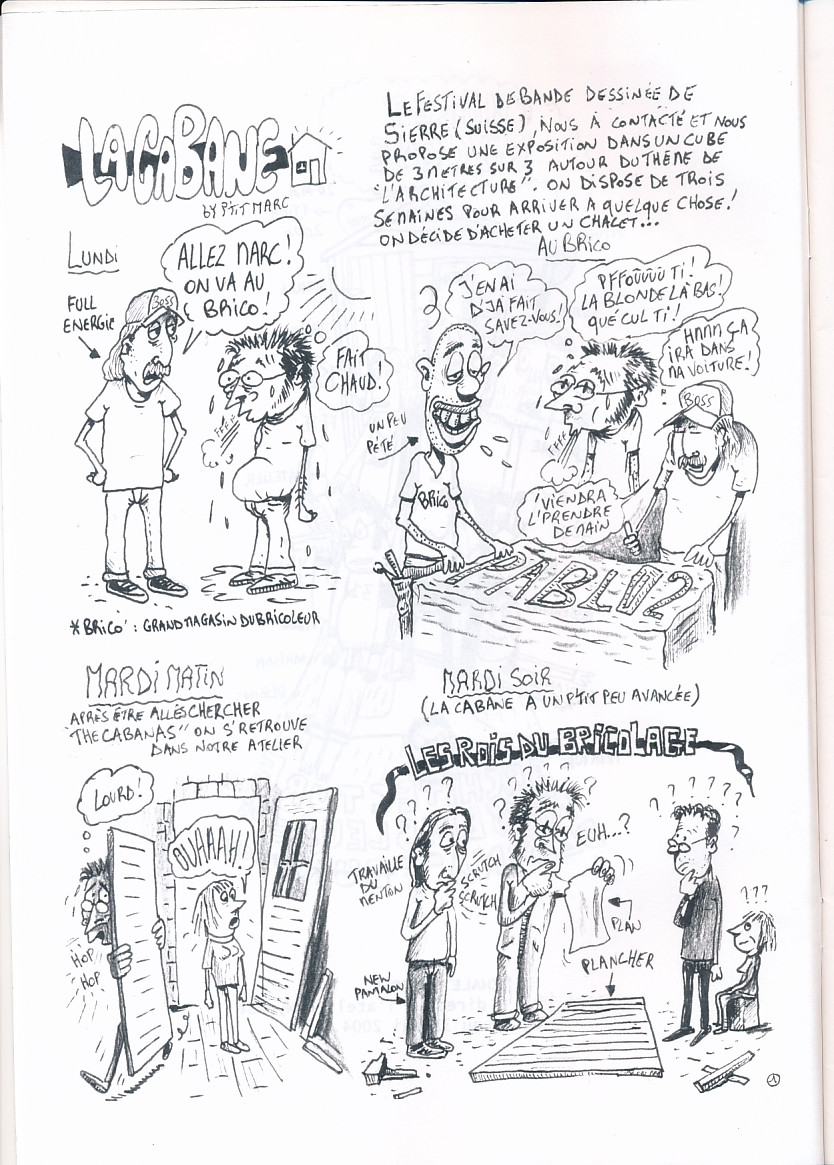 LA CABANE
BY P'TIT MARC
LE FESTIVAL DE BANDE DESSINÉE DE
SIERRE (SUISSE), NOUS À CONTACTÉ ET NOUS
PROPOSE UNE EXPOSITION DANS UN CUBE
DE 3 METRES SUR 3 AUTOUR DU THÈME DE
"L'ARCHITECTURE". ON DISPOSE DE TROIS
SEMAINES POUR ARRIVER A QUELQUE CHOSE!
ON DÉCIDE D'ACHETER UN CHALET...
LUNDI
FULL
ENERGIE
ALLEZ MARC!
ON VA AU
BRICO!
BOSS
FAIT
CHAUD!
* BRICO' : GRAND MAGASIN DU BRICOLEUR
AU BRICO
J'EN AI
D'JÀ FAIT
SAVEZ-VOUS!
PFFOÛÛÛÛ TI!
LA BLONDE LÀ BAS!
QUÉ CUL TI!
HNNN ÇA
IRA DANS
MA VOITURE!
UN PEU
PÉTÉ
BRICO
BOSS
VIENDRA
L'PRENDRE
DEMAIN
PABLO2
MARDI MATIN
APRÈS ÊTRE ALLÉS CHERCHER
"THE CABANAS" ON S'RETROUVE
DANS NOTRE ATELIER
LOURD!
OUHAAAH!
HOP
HOP
MARDI SOIR
(LA CABANE A UN P'TIT PEU AVANCÉE)
LES ROIS DU BRICOLAGE
? ? ? ?
? ? ? ? ?
? ? ? ? ?
TRAVAILLE
DU
MENTON
SCRUTCH
SCRUTCH
EUH...?
PLAN
PLANCHER
NEW
PANTALON
? ? ?
1